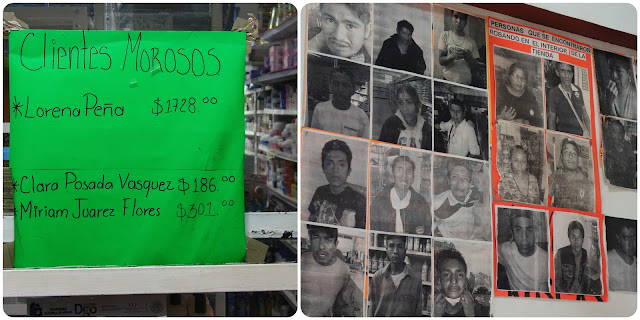 Clientes Morosos
*Lorena Peña $1728.00
*Clara Posada Vasquez $186.00
*Miriam Juarez Flores $301.00
PERSONAS QUE SE ENCONTRARON
ROBANDO EN EL INTERIOR DE LA
TIENDA